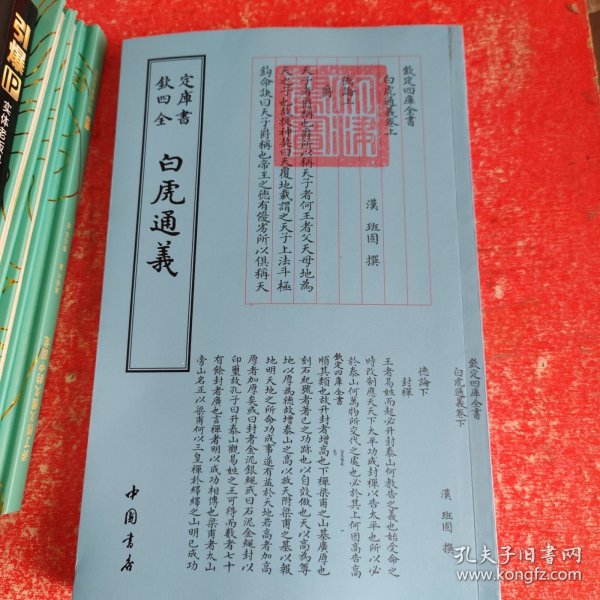 钦定四库全书
白虎通義
欽定四庫全書
白虎通義卷上
漢 班固 撰
德論上
爵
天子者爵稱也爵所以稱天子者何王者父天母地為
天之子也故援神契曰天覆地載謂之天子上法斗極
鈎命訣曰天子爵稱也帝王之德有優劣所以俱稱天
欽定四庫全書
白虎通義卷下
漢 班固 撰
德論下
封禪
王者易姓而起必升封泰山何教告之義也始受命之
時改制應天天下太平功成封禪以告太平也所以必
於泰山何萬物所交代之處也必於其上何因高告高
欽定四庫全書
順其類也故升封者增高也下禪梁甫之山基廣厚也
刻石紀號者著己之功跡也以自效倣也天以高為尊
地以厚為德故增泰山之高以放天附梁甫之基以報
地明天地之所命功成事遂有益於天地若高者加高
厚者加厚矣或曰封者金泥銀繩或曰石泥金繩封以
印璽故孔子曰升泰山觀易姓之王可得而數者七十
有餘封者廣也言禪者明以成功相傳也梁甫者太山
旁山名正以梁甫何以三皇禪於繹繹之山明已成功
中国书店
引爆IP
孔夫子旧书网
www.kongfz.com